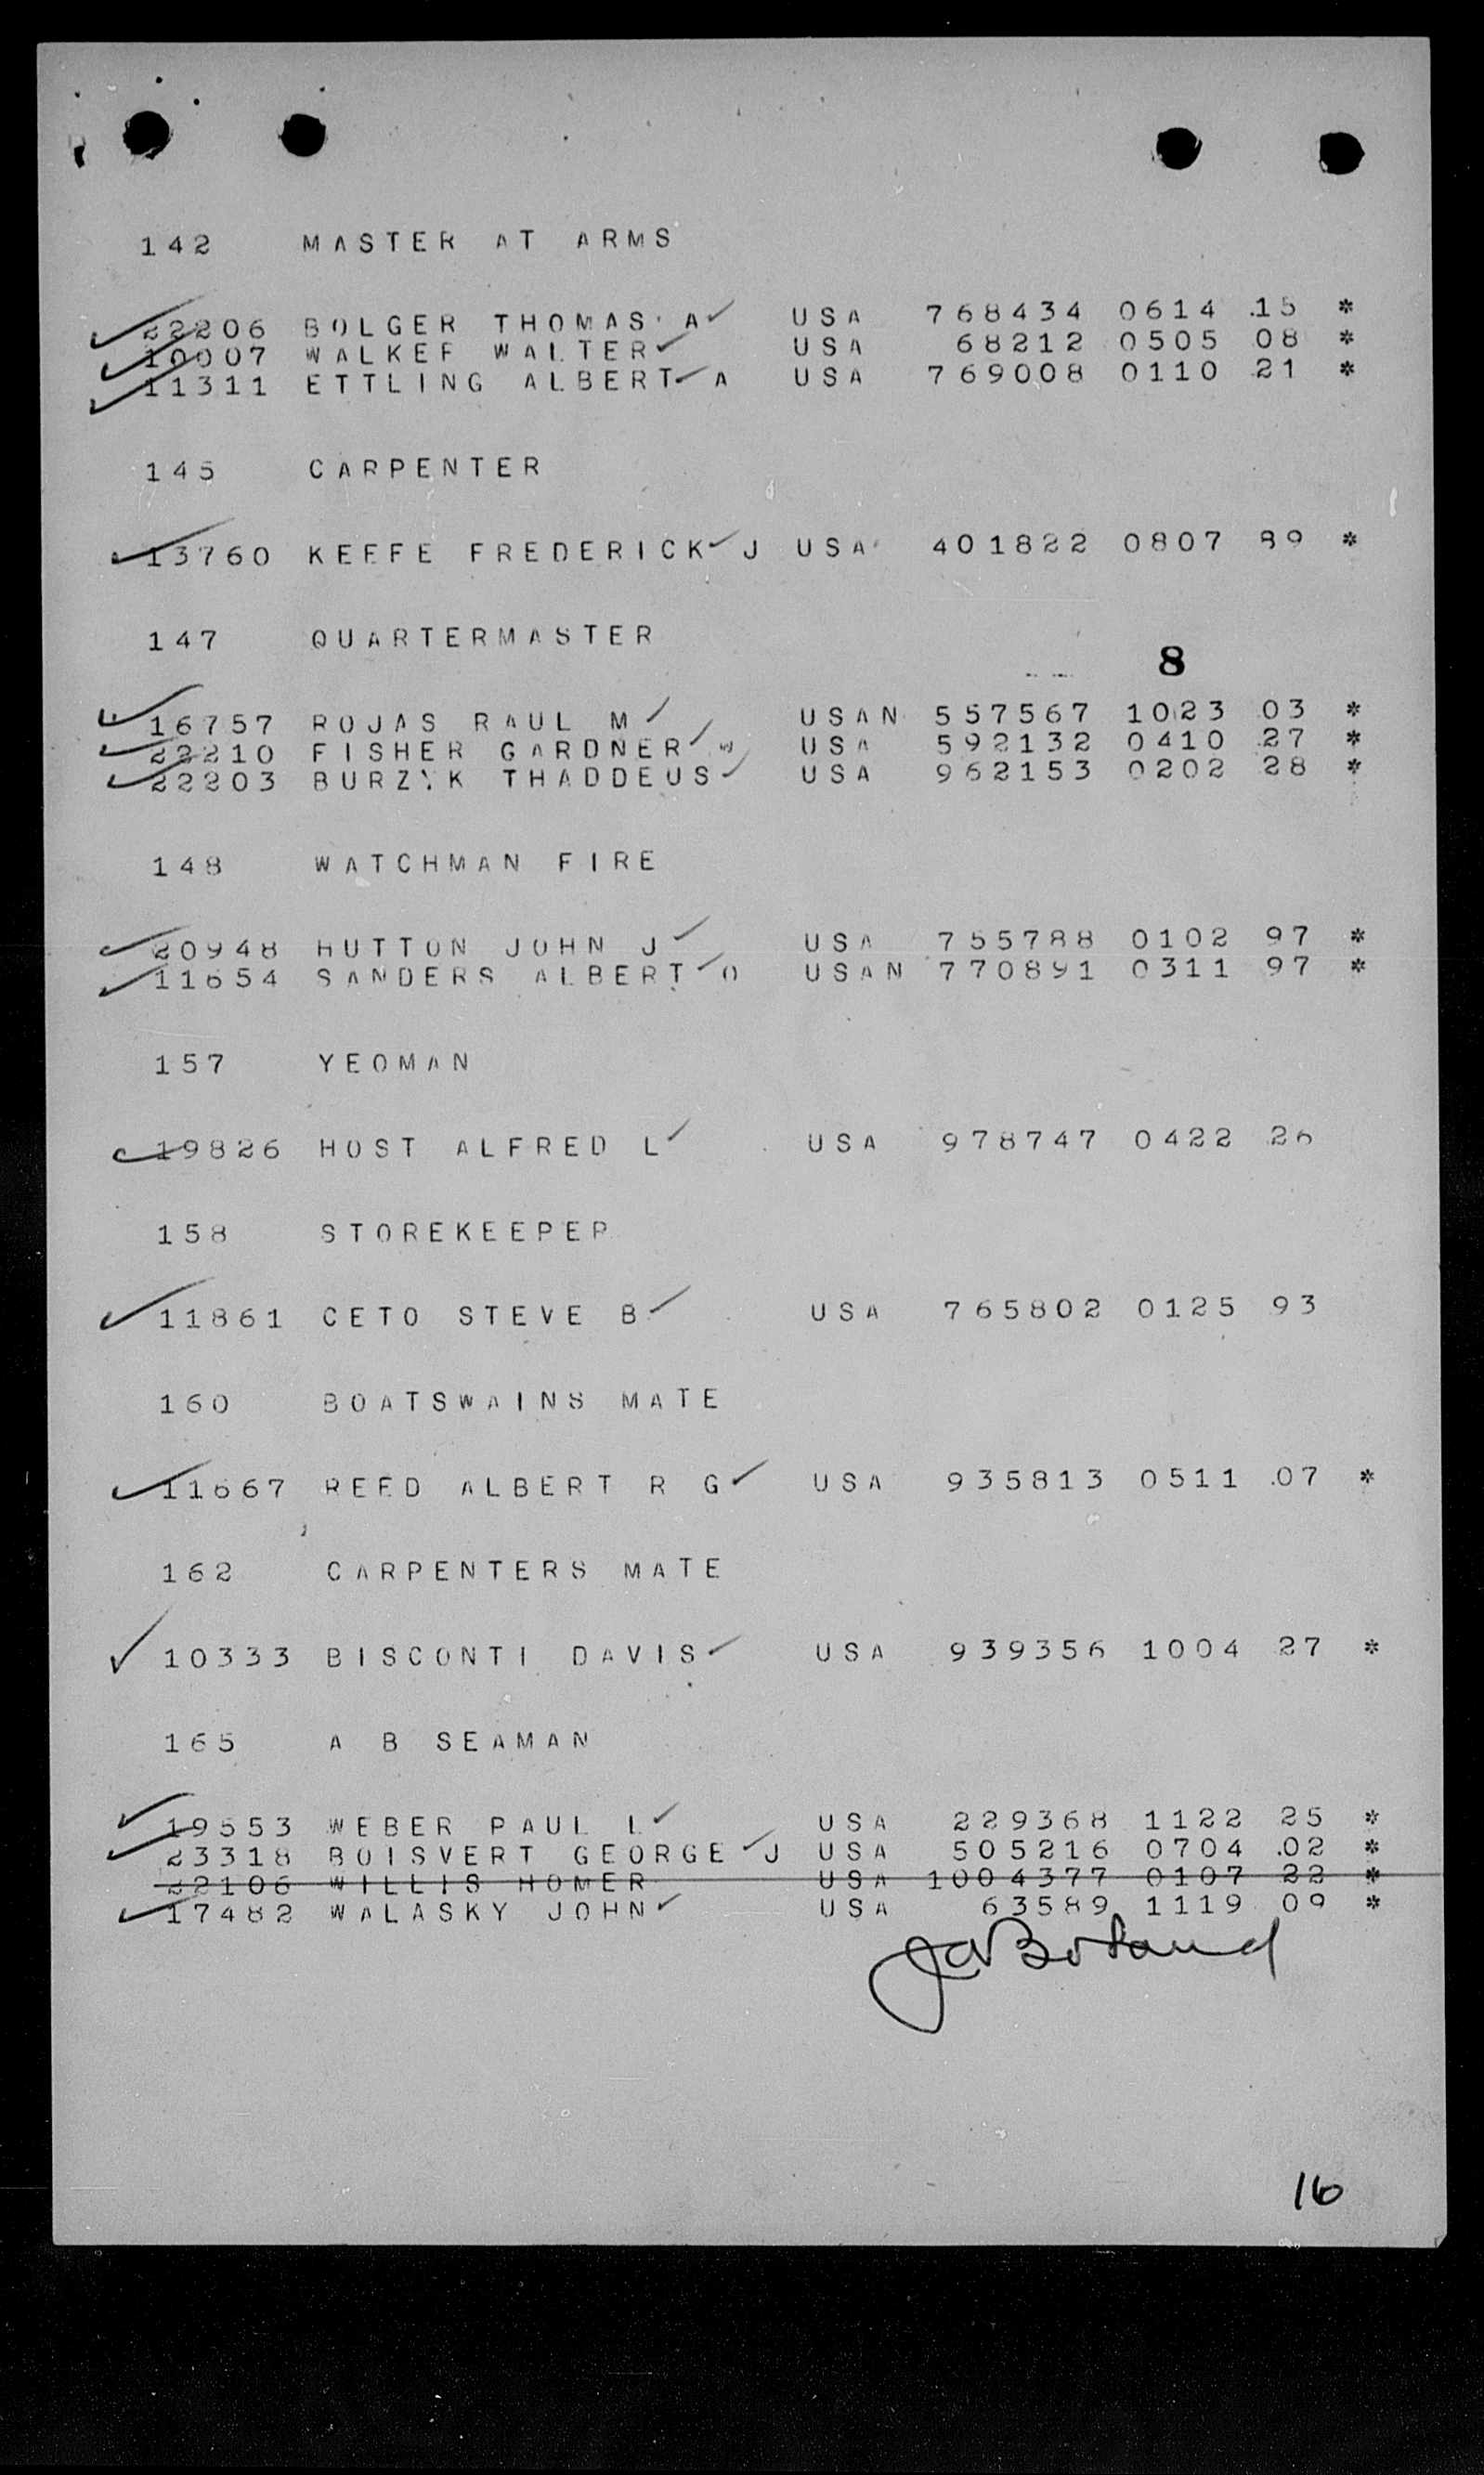 142 MASTER AT ARMS
22206 BOLGER THOMAS A USA 768434 0614 15 *
10007 WALKER WALTER USA 68212 0505 08 *
11311 ETTLING ALBERT A USA 769008 0110 21 *
145 CARPENTER
13760 KEEFE FREDERICK J USA 401822 0807 89 *
147 QUARTERMASTER
8
16757 ROJAS RAUL M USAN 557567 1023 03 *
22210 FISHER GARDNER W USA 592132 0410 27 *
22203 BURZYK THADDEUS USA 962153 0202 28 *
148 WATCHMAN FIRE
20948 HUTTON JOHN J USA 755788 0102 97 *
11654 SANDERS ALBERT O USAN 770891 0311 97 *
157 YEOMAN
19826 HOST ALFRED L USA 978747 0422 26
158 STOREKEEPER
11861 CETO STEVE B USA 765802 0125 93
160 BOATSWAINS MATE
11667 REED ALBERT R G USA 935813 0511 07 *
162 CARPENTERS MATE
10333 BISCONTI DAVIS USA 939356 1004 27 *
165 A B SEAMAN
19553 WEBER PAUL L USA 229368 1122 25 *
23318 BOISVERT GEORGE J USA 505216 0704 02 *
22106 WILLIS HOMER USA 1004377 0107 22 *
17482 WALASKY JOHN USA 63589 1119 09 *
JABoland
16